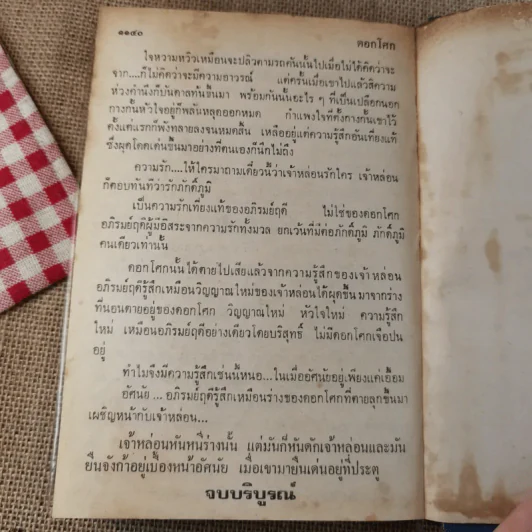 ๑๑๔๐
ดอกโศก
ใจหวามหวิวเหมือนจะปลิวตามรถคันนั้นไปเมื่อไม่ได้คิดว่าจะ
จาก....ก็ไม่คิดว่าจะมีความอาวรณ์ แต่ครั้นเมื่อเขาไปแล้วสิความ
ห่วงคำนึงก็บันดาลทันขึ้นมา พร้อมกันนั้นอะไร ๆ ที่เป็นเปลือกนอก
กางกั้นหัวใจอยู่ก็พลันหลุดออกหมด กำแพงใจที่ตั้งกางกั้นเขาไว้
ตั้งแต่แรกก็พังทลายลงจนหมดสิ้น เหลืออยู่แต่ความรู้สึกอันเที่ยงแท้
ซึ่งผุดโดดเด่นขึ้นมาอย่างที่ตนเองก็นึกไม่ถึง
ความรัก....ให้ใครมาถามเดี๋ยวนี้ว่าเจ้าหล่อนรักใคร เจ้าหล่อน
ก็ตอบทันทีว่ารักภักดิ์ภูมิ
เป็นความรักเที่ยงแท้ของอภิรมย์ฤดี ไม่ใช่ของดอกโศก
อภิรมย์ฤดีผู้มีอิสระจากความรักทั้งมวล ยกเว้นที่มีต่อภักดิ์ภูมิ ภักดิ์ภูมิ
คนเดียวเท่านั้น
ดอกโศกนั้นได้ตายไปเสียแล้วจากความรู้สึกของเจ้าหล่อน
อภิรมย์ฤดีรู้สึกเหมือนวิญญาณใหม่ของเจ้าหล่อนได้ผุดขึ้นมาจากร่าง
ที่นอนตายอยู่ของดอกโศก วิญญาณใหม่ หัวใจใหม่ ความรู้สึก
ใหม่ เหมือนอภิรมย์ฤดีอย่างเดียวโดยบริสุทธิ์ ไม่มีดอกโศกเจือปน
อยู่
ทำไมจึงมีความรู้สึกเช่นนี้หนอ...ในเมื่ออัศนัยอยู่เพียงแค่เอื้อม
อัศนัย ... อภิรมย์ฤดีรู้สึกเหมือนร่างของดอกโศกที่ตายลุกขึ้นมา
เผชิญหน้ากับเจ้าหล่อน...
เจ้าหล่อนหันหนีร่างนั้น แต่มันก็หันดักเจ้าหล่อนและมัน
ยืนจังก้าอยู่เบื้องหน้าอัศนัย เมื่อเขามายืนเด่นอยู่ที่ประตู
จบบริบูรณ์